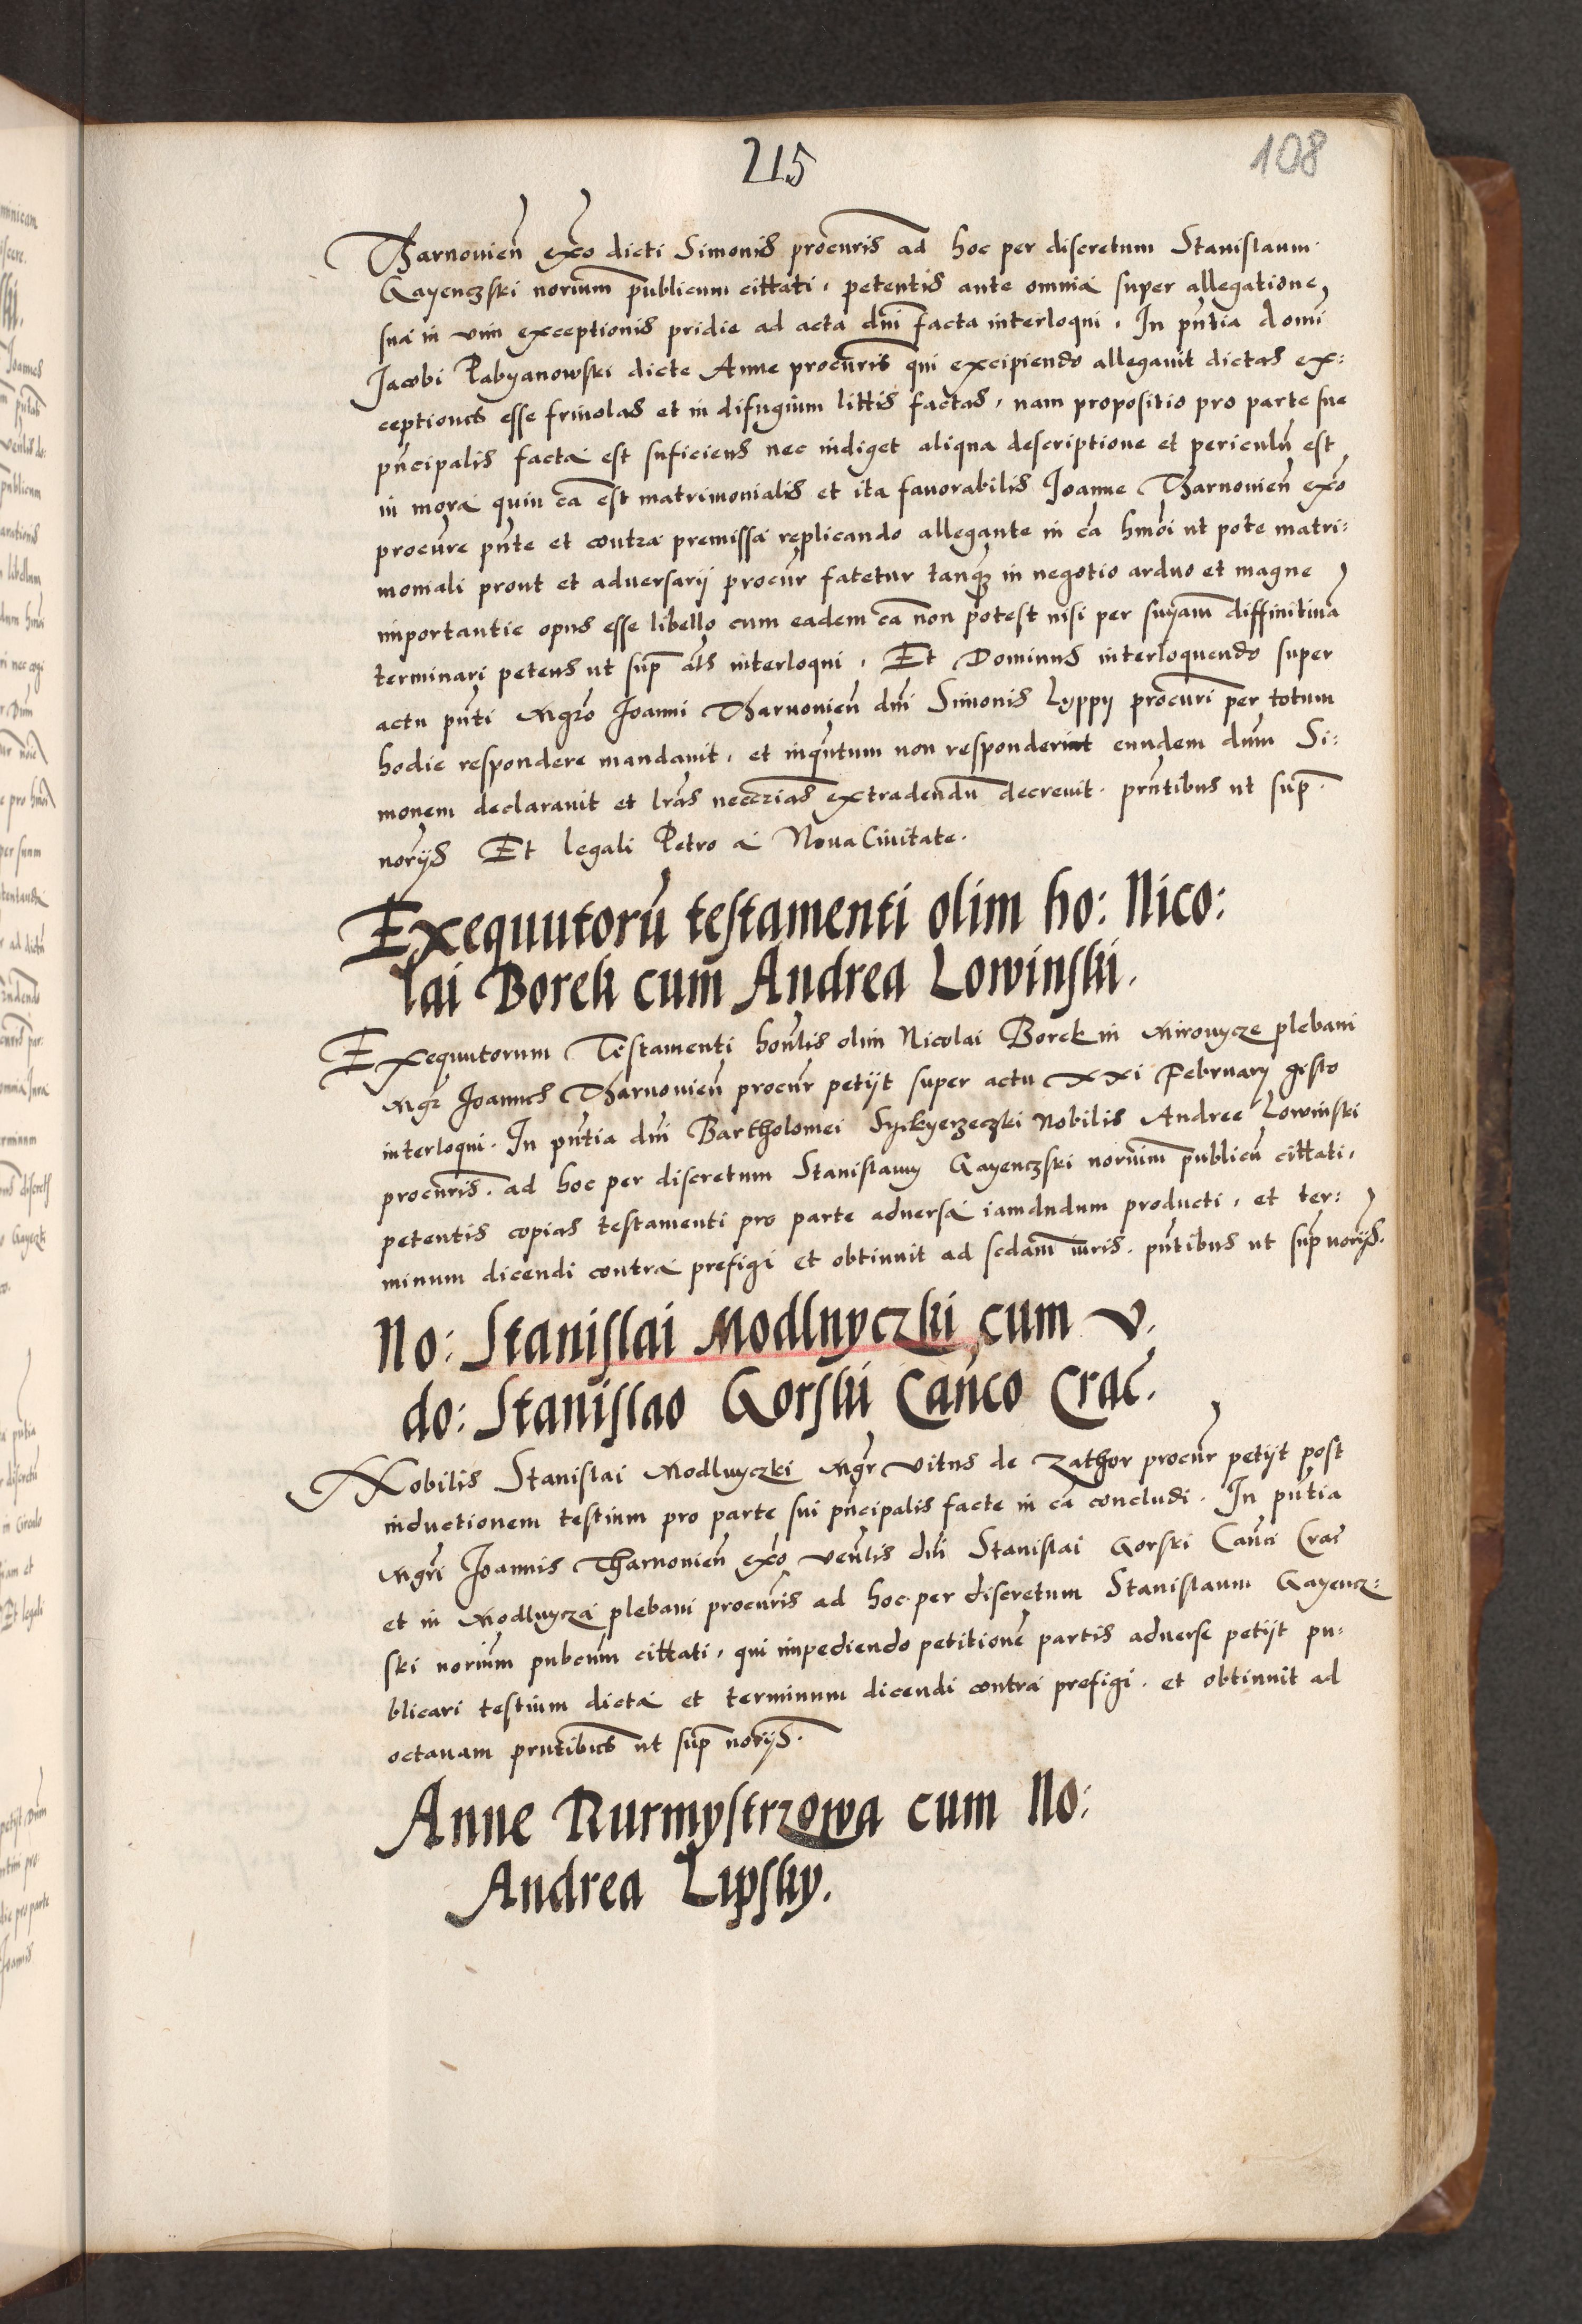 215
108
Tharnovien̄ ex̄co dicti Simonis procuris ad hoc per discretum Stanislaum
Gayenczski norium publicum cittati, petentis ante omnia super allegatione
sua in vim exceptionis pridie ad acta dni facta interloqui. In pn̄tia domi
Jacobi Pabyanowski dicte Anne procuris qui excipiendo allegavit dictas ex:
ceptiones esse frivolas et in difugium littis factas, nam propositio pro parte sue
pn̄cipalis facta est suficiens nec indiget aliqua descriptione et periculū est
in mora quin cā est matrimonialis et ita favorabilis Joanne Tharnovien̄ ex̄co
procure pn̄te et contra premissa replicando allegante in cā hmōi ut pote matri:
moniali prout et adversarij procur fatetur tanq̄ in negotio arduo et magne
importantie opus esse libello cum eadem cā non potest nisi per snyam diffinitivā
terminari petens ut sup̄ als interloqui. Et Dominus interloquendo super
actu pn̄ti Mgrō Joanni Tharnovien̄ dni Simonis Lyppy procuri per totum
hodie respondere mandavit, et inqn̄tum non responderint eundem dnm Si:
monem declaravit et lrās neccrias extradendū decrevit. prn̄tibus ut sup̄.
norijs Et legali Petro a Nova Civitate.
Exequutorū testamenti olim ho: Nico:
lai Borek cum Andrea Lowinski.
Exequutorum Testamenti hon̄lis olim Nicolai Borek in Mironycze plebani
Mgr̄ Joannes Tharnovien̄ procur petijt super actu xxi Februarij gesto
interloqui. In pn̄tia dni Bartholomei Syekyerzeczki Nobilis Andree Lowinski
procuris. ad hoc per discretum Stanislaum Gayenczski norium publicū cittati,
petentis copias testamenti pro parte adversa iamdudum producti, et ter:
minum dicendi contra prefigi et obtinuit ad scdam iuris. pn̄tibus ut sup̄ norijs.
No: Stanislai Modlnyczki cum v.
do: Stanislao Gorski Can̄co Crac̄.
Nobilis Stanislai Modlnyczki Mgr̄ Vitus de Zathor procur petijt post
inductionem testium pro parte sui pn̄cipalis facte in cā concludi. In pn̄tia
Mgrī Joannis Tharnovien̄ ex̄co ven̄lis dni Stanislai Gorski Can̄ci Crac̄
et in Modlnycza plebani procuris ad hoc per discretum Stanislaum Gayencz:
ski norium pubcum cittati, qui impediendo petitionē partis adverse petijt pu:
blicari testium dicta et terminum dicendi contra prefigi. et obtinuit ad
octavam prn̄tibus ut sup̄ norijs.
Anne Burmystrzowa cum No:
Andrea Lipsky.